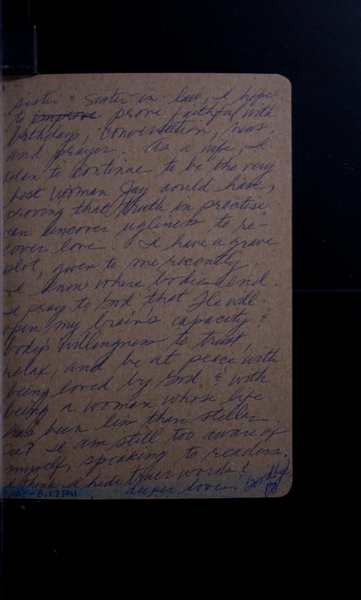 sister & sister-in law, I hope
to improve prove faithful with
birthdays, conversation, news,
and prayer. As a wife, I
plan to continue to be the very
best woman Jay could have,
proving that truth in practise
can uncover ugliness to re-
cover love. I have a grave
plot, given to me recently.
I know where bodies end.
I pray to God that He will
open my brain's capacity &
body's willingness to trust,
relax, and be at peace with
being loved by God & with
being a woman whose life
has been less than stellar
I am still too aware of
myself, speaking to readers.
I think I hide truer words &
deeper love.